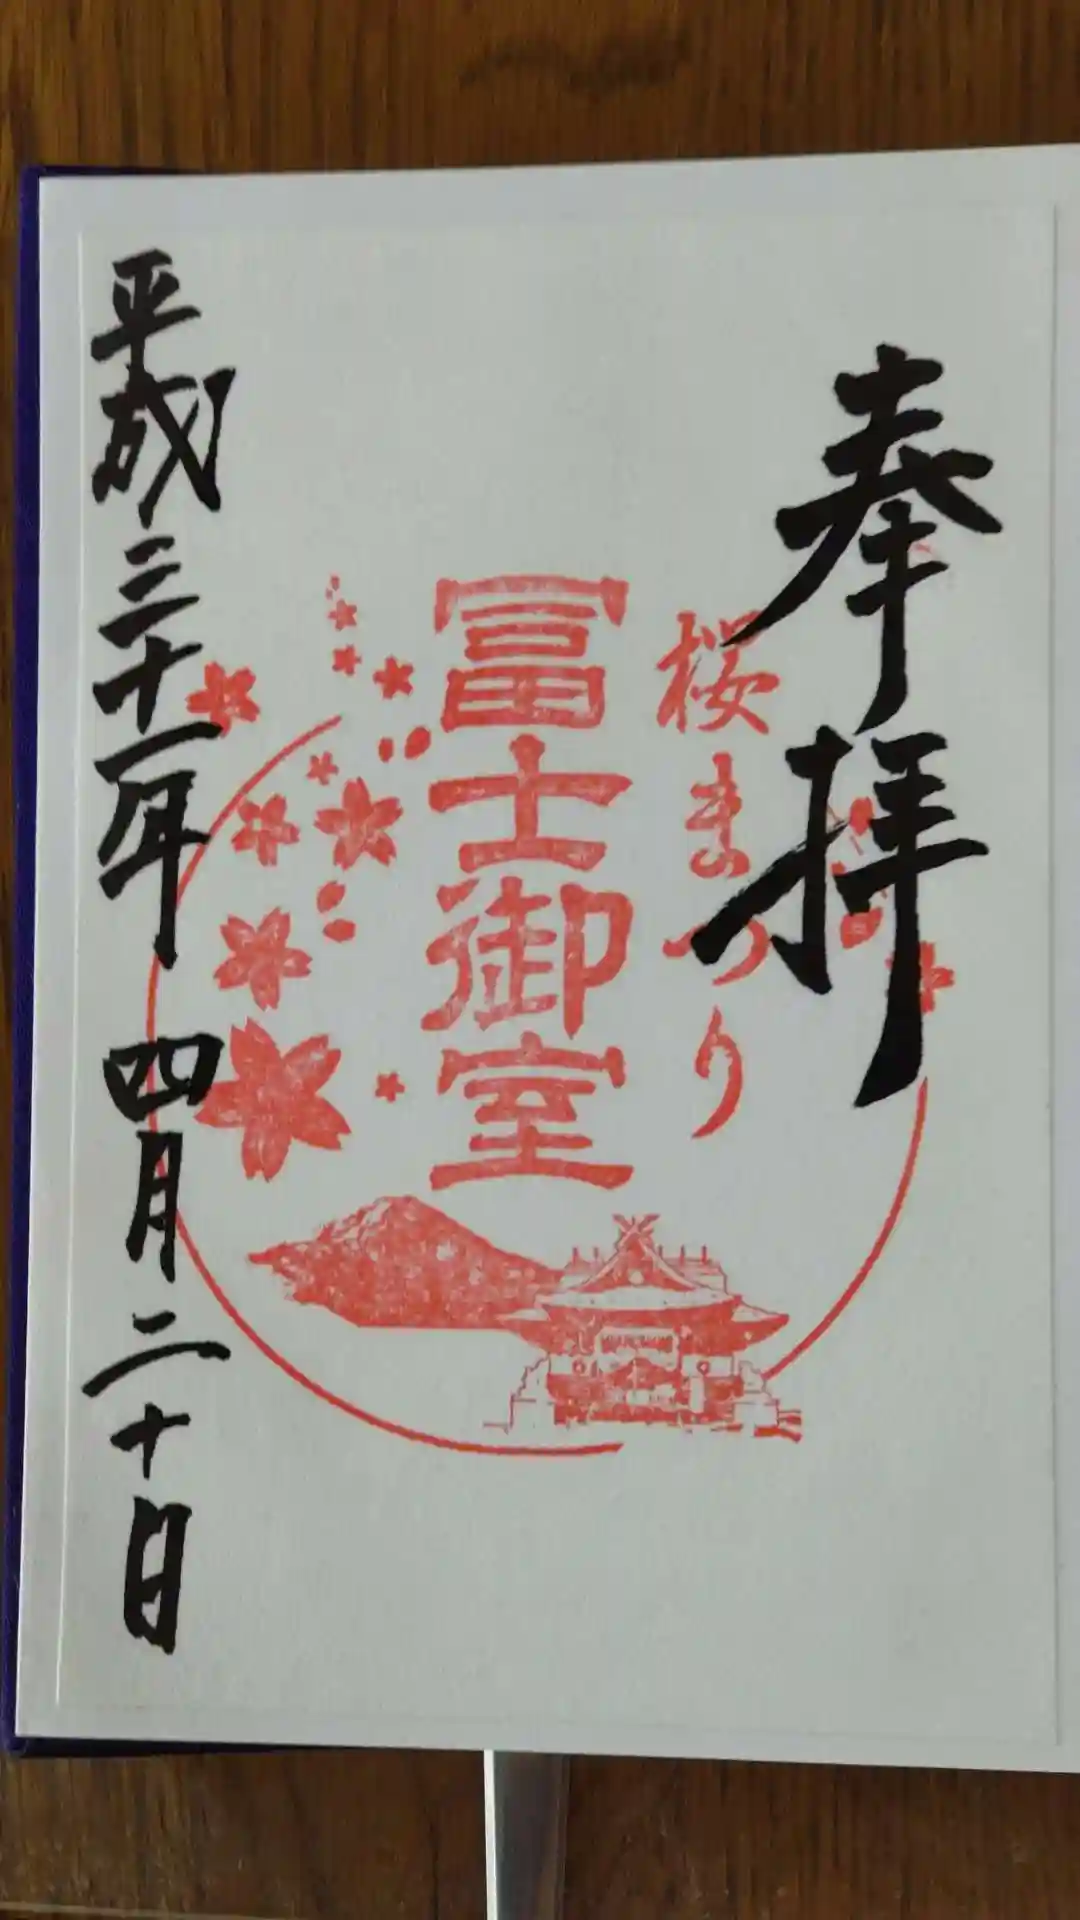 奉拝
桜まつり
冨士御室
平成三十一年 四月二十日